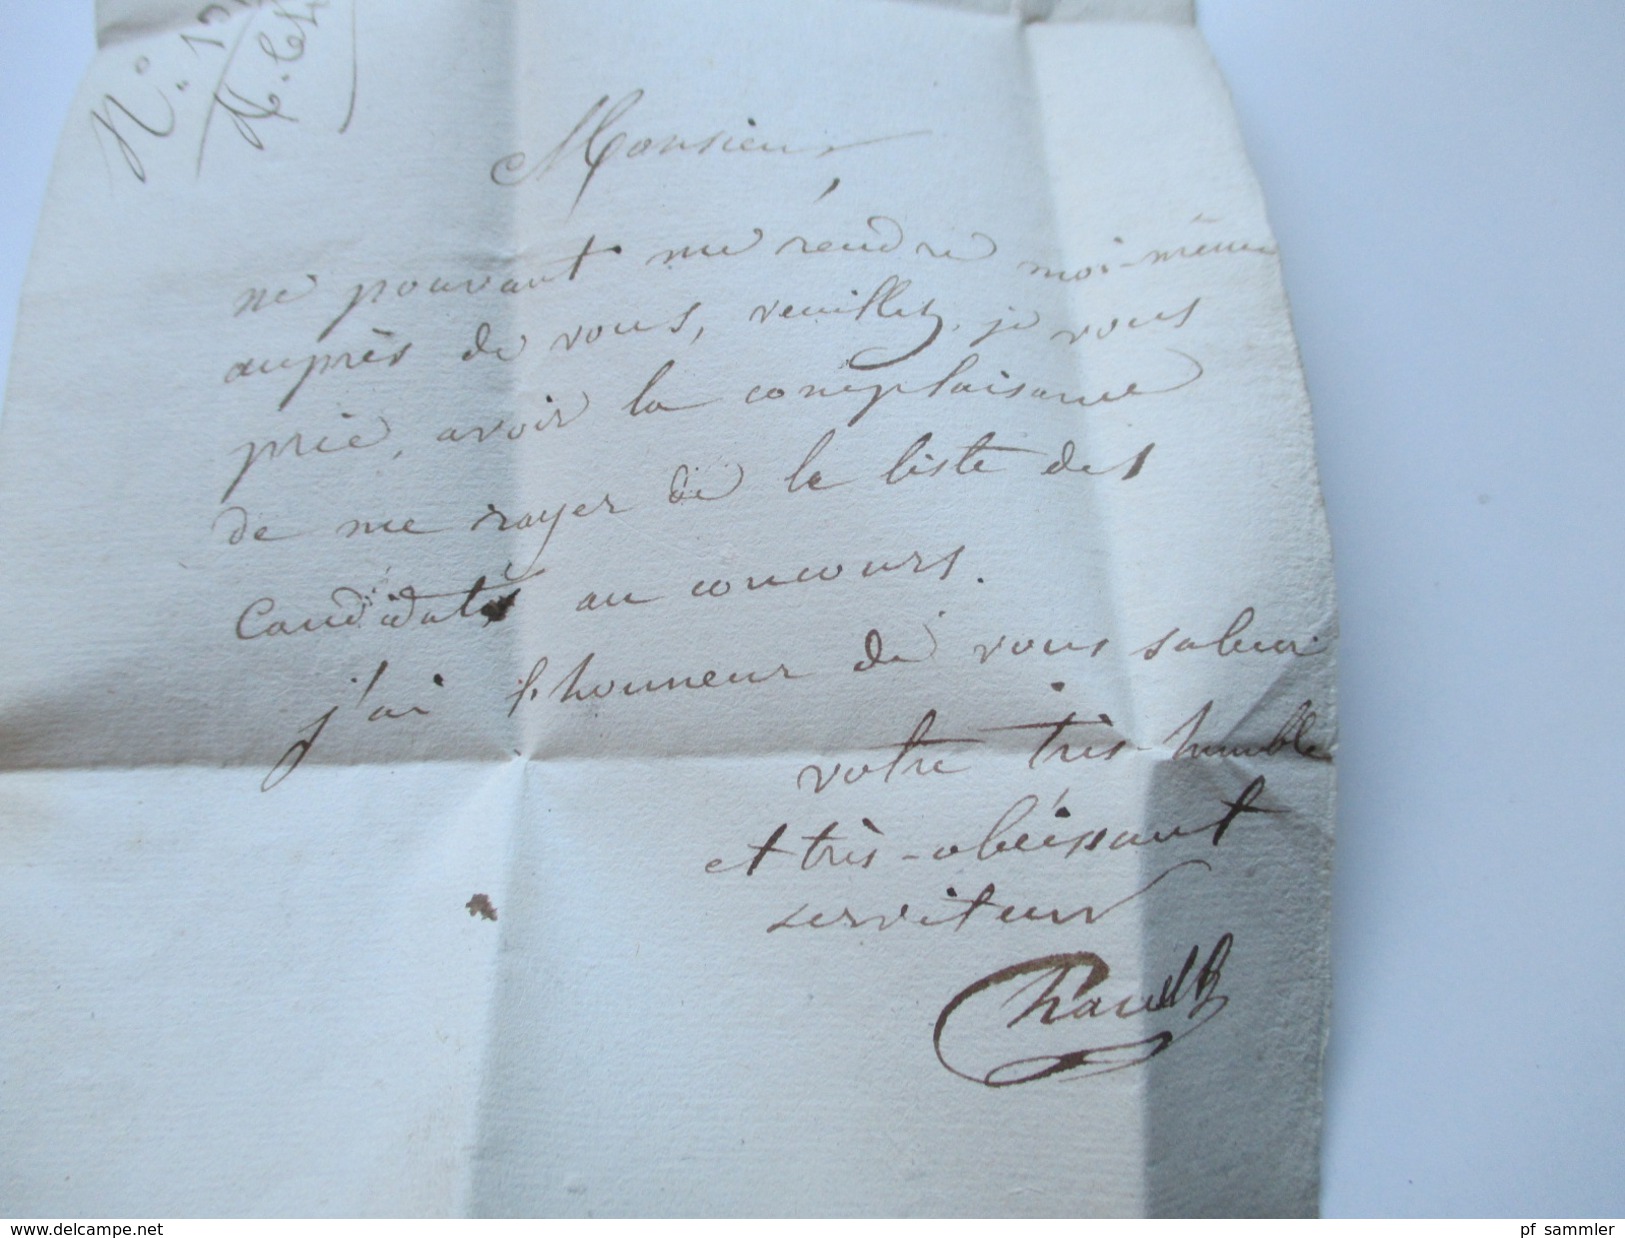 N°
Monsieur
ne pouvant me rendre moi-même
auprès de vous, veuillez, je vous
prie, avoir la complaisance
de me rayer de la liste des
Candidats au concours.
j'ai l'honneur de vous saluer
votre très-humble
et très-obéissant
serviteur
www.delcampe.net
pf_sammler